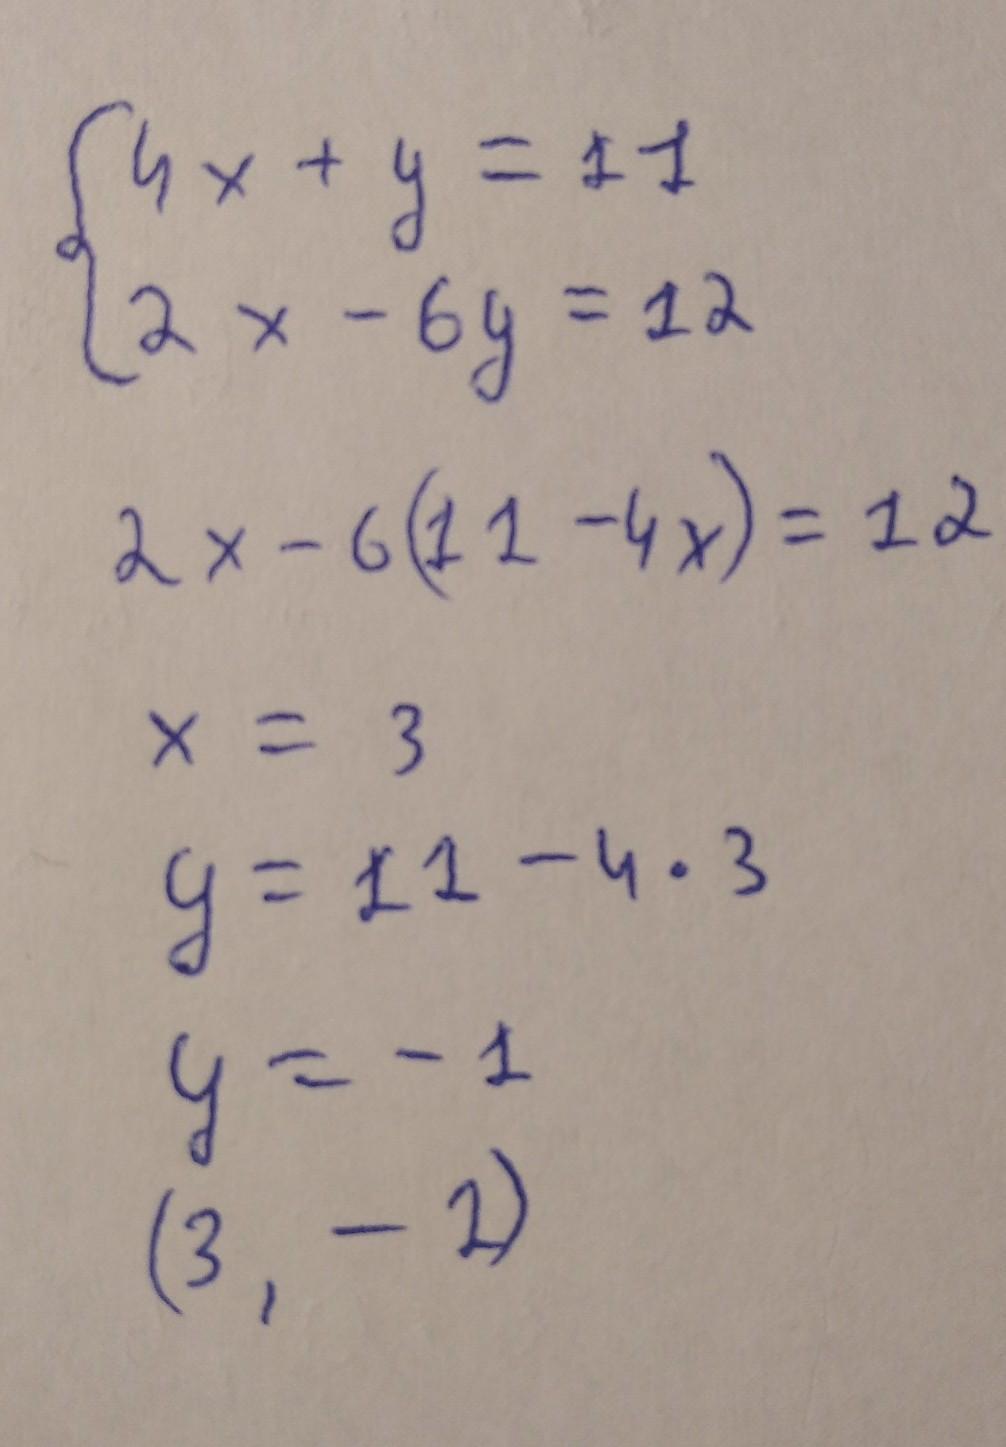 4x + y = 11
2x - 6y = 12
2x - 6(11 - 4x) = 12
x = 3
y = 11 - 4 · 3
y = -1
(3, -1)